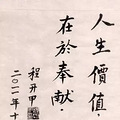 人生價值，
在於奉献．
程开甲
二〇一一年十